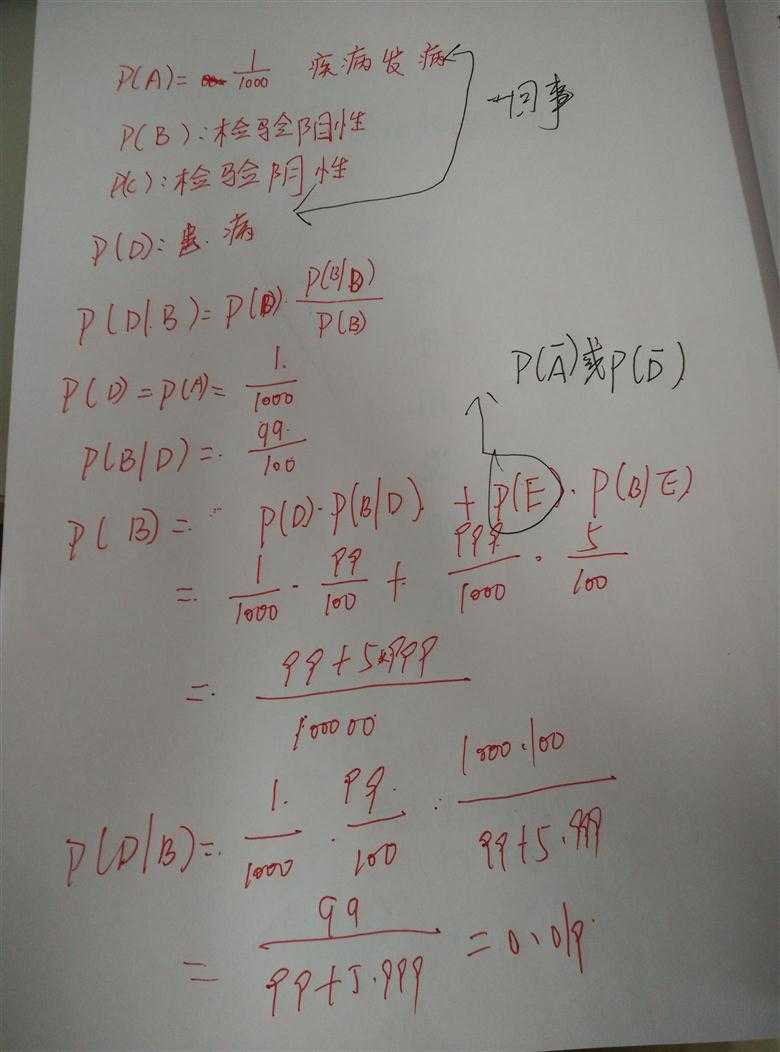 P(A)= 1/1000 疾病发病
一回事
P(B):检验阳性
P(C):检验阴性
P(D):患病
P(D|B)=P(D)·P(B|D)/P(B)
P(D)=P(A)=1/1000
P(A̅)或P(D̅)
P(B|D)=99/100
P(B)= P(D)·P(B|D)+P(E)·P(B|E)
=1/1000·99/100+999/1000·5/100
=99+5*999/100000
P(D|B)=1/1000·99/100·1000·100/99+5·999
=99/99+5·999=0.019